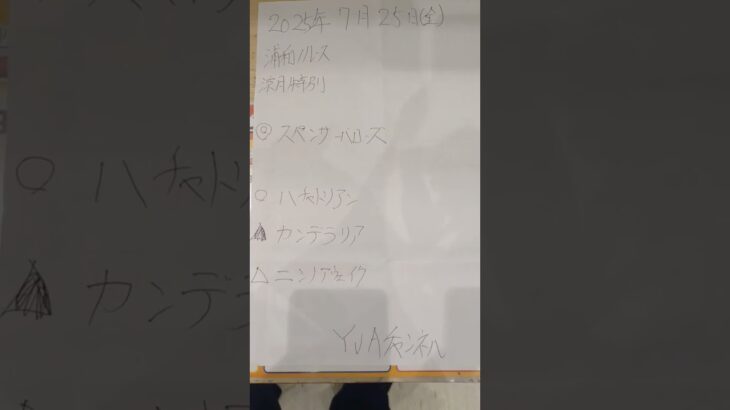 2025年 7月 25日(金)
浦和ノルース
涼月特別
◎ スペンサーハローズ
○ ハチャドリアン
▲ カンデラリア
△ ニシノアウェイク
YUAチャンネル